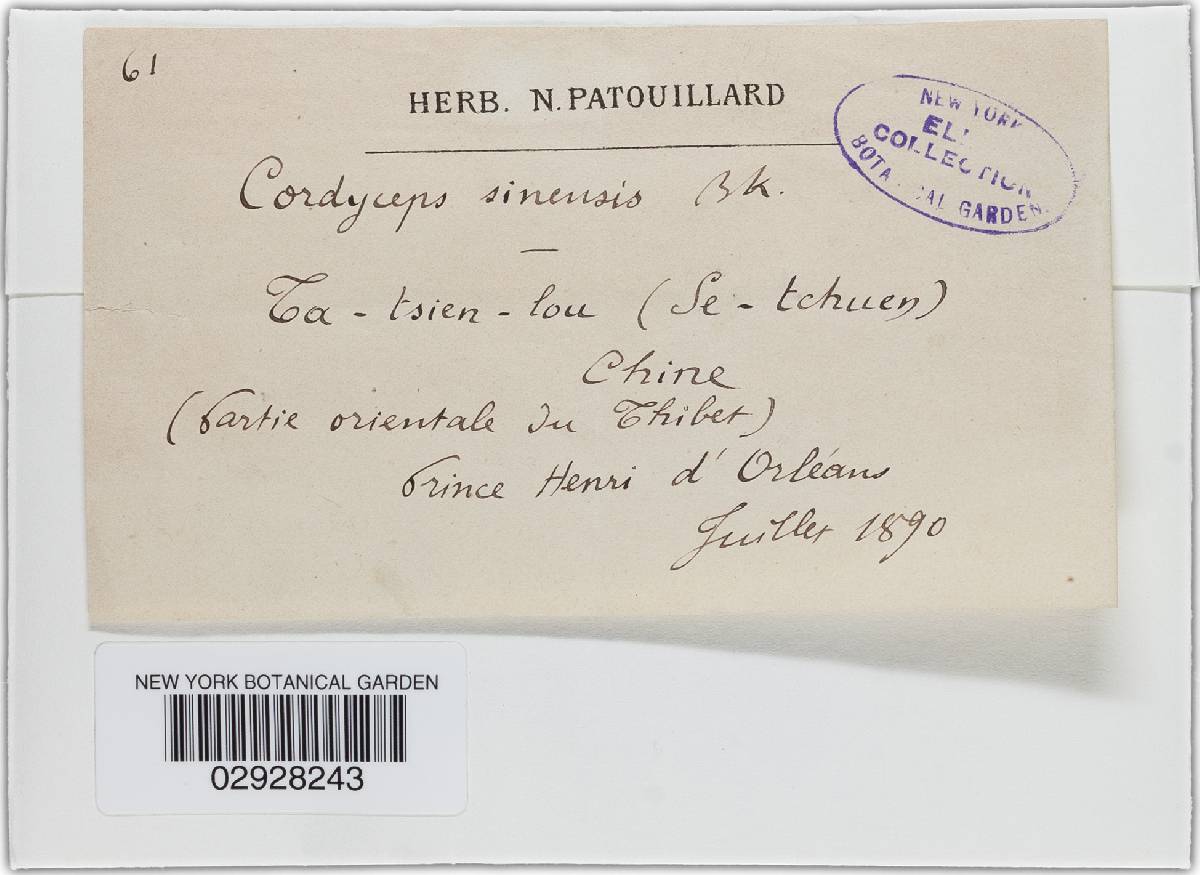 61
HERB. N. PATOUILLARD
NEW YORK
COLLECTION
GARDEN.
Cordyceps sinensis Bk.
—
Ta - tsien - lou (Se - tchuen)
Chine
(Partie orientale du Thibet)
Prince Henri d'Orléans
Juillet 1890
NEW YORK BOTANICAL GARDEN
02928243